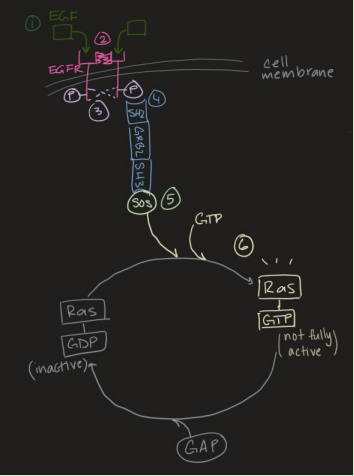 ① EGF
②
EGFR
cell
membrane
P
P
③
④
SH2
GRB2
SH3
SOS
⑤
GTP
⑥
Ras
GTP
(not fully
active)
Ras
GDP
(inactive)
GAP